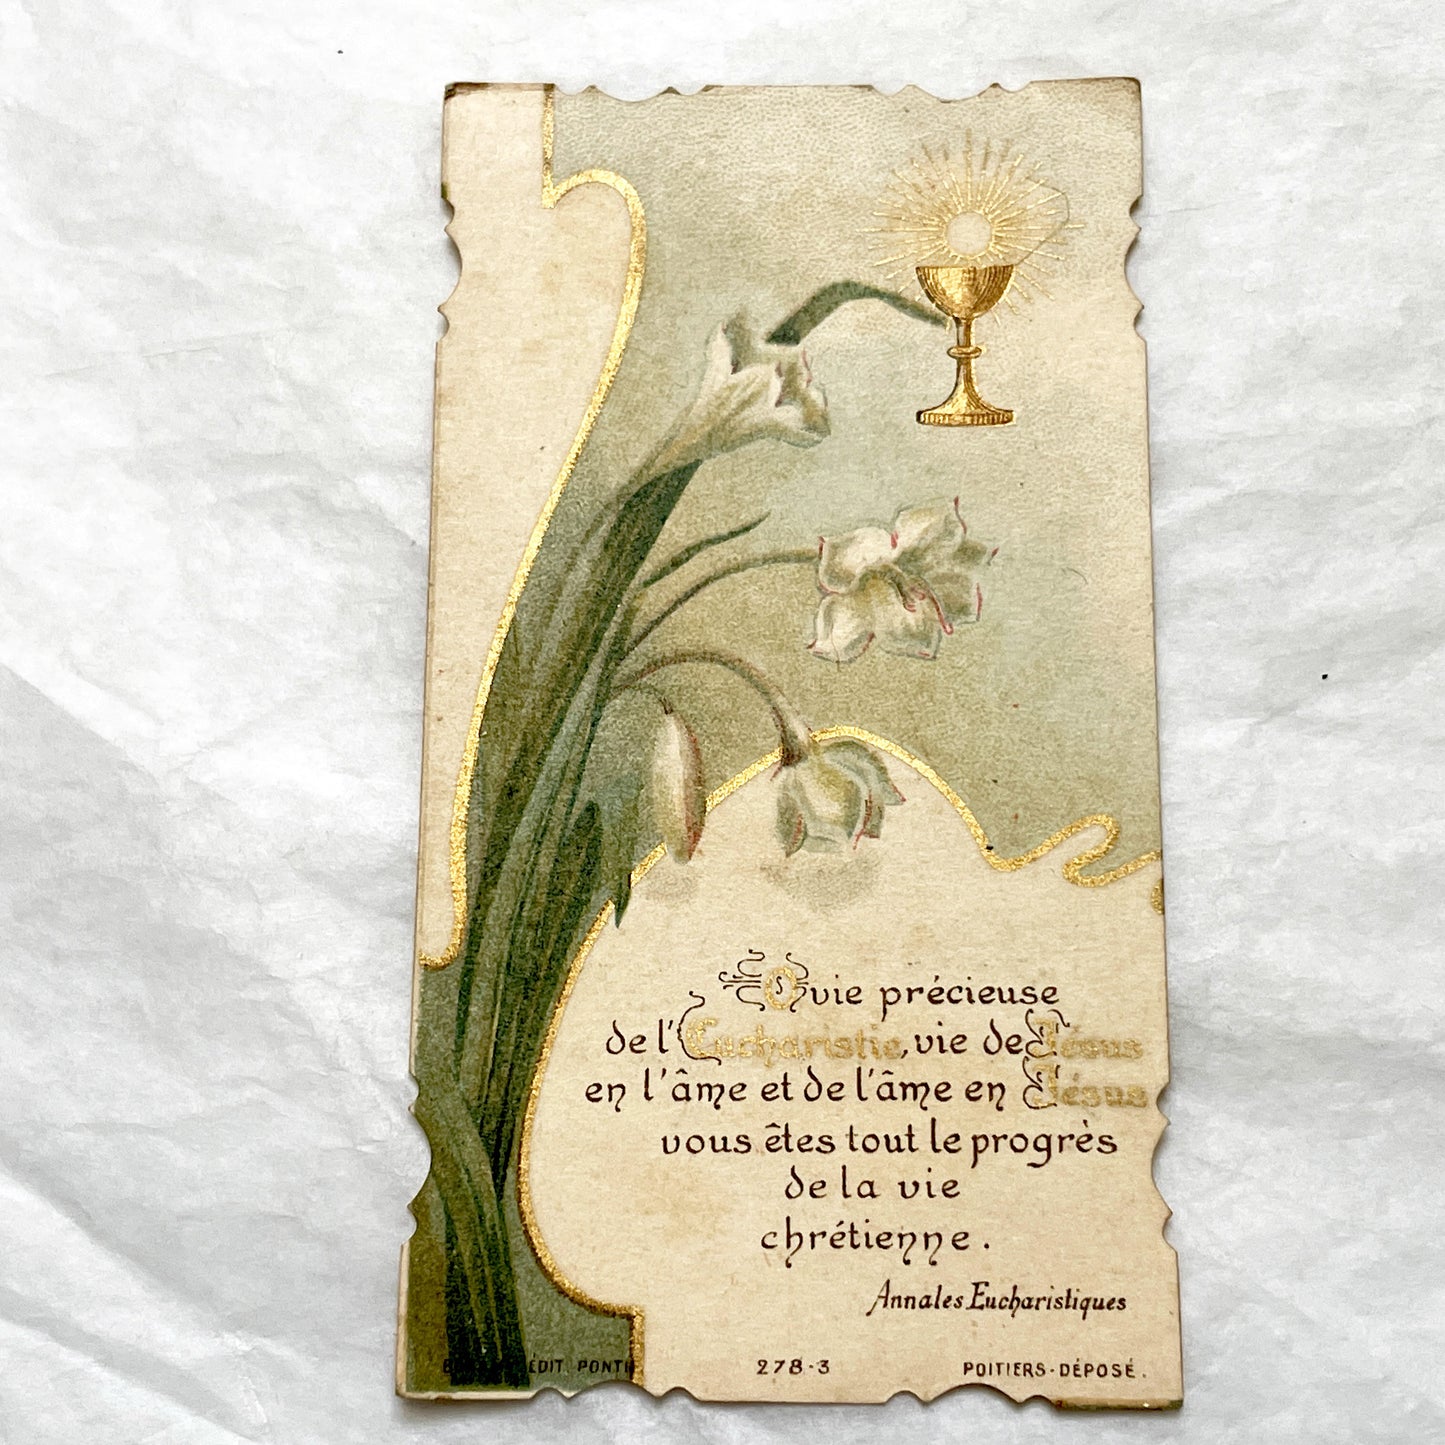 O vie précieuse
de l'Eucharistie, vie de Jésus
en l'âme et de l'âme en Jésus
vous êtes tout le progrès
de la vie
chrétienne.
Annales Eucharistiques
ÉDIT. PONTIF.
278-3
POITIERS-DÉPOSÉ.